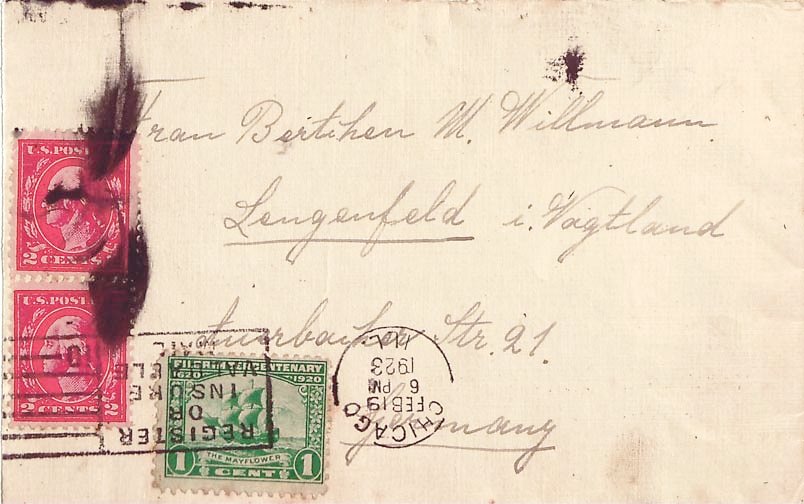 Frau Bertchen M. Willmann
Lengenfeld i. Vogtland
Auerbacher Str. 21.
Germany
U.S. POST
2 CENTS 2
U.S. POST
2 CENTS 2
PILGRIM TERCENTENARY
1620 1920
THE MAYFLOWER
1 CENT 1
REGISTER
OR
INSURE
VALUABLE
MAIL
CHICAGO
FEB 19
6 PM
1923
ILL